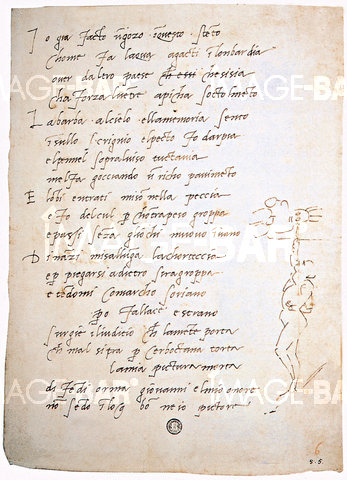 Io gia facto ūgozo ī questo stēto
chome fa lacqua agacti ī lombardia
over daltro paese che essi che si sia
cha forza lventre apicha socto lmēto
La barba alcielo ellamemoria sento
īsullo scrignio elpecto fo darpia
elpennel sopraluiso tuctavia
melfa gocciando ū richo pavimēto
E lobi entrati misō nella peccia
e fo delcul p chōtrapeso groppa
e passi seza gliochi muovo īuano
Dināzi misallūga lachorteccia
e p piegarsi adietro siragroppa
e tēdomi comarcho soriano
po fallace e strano
surgie il iudicio che lamēte porta
che mal si tra p cerboctana torta
lamia pictura morta
difedi orma giovanni elmio onore
nō sēdo ī loco bō ne io pictore